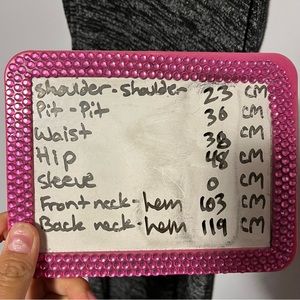 Shoulder-Shoulder 23 CM
Pit-Pit 36 CM
Waist 38 CM
Hip 48 CM
Sleeve 0 CM
Front neck-hem 103 CM
Back neck-hem 119 CM